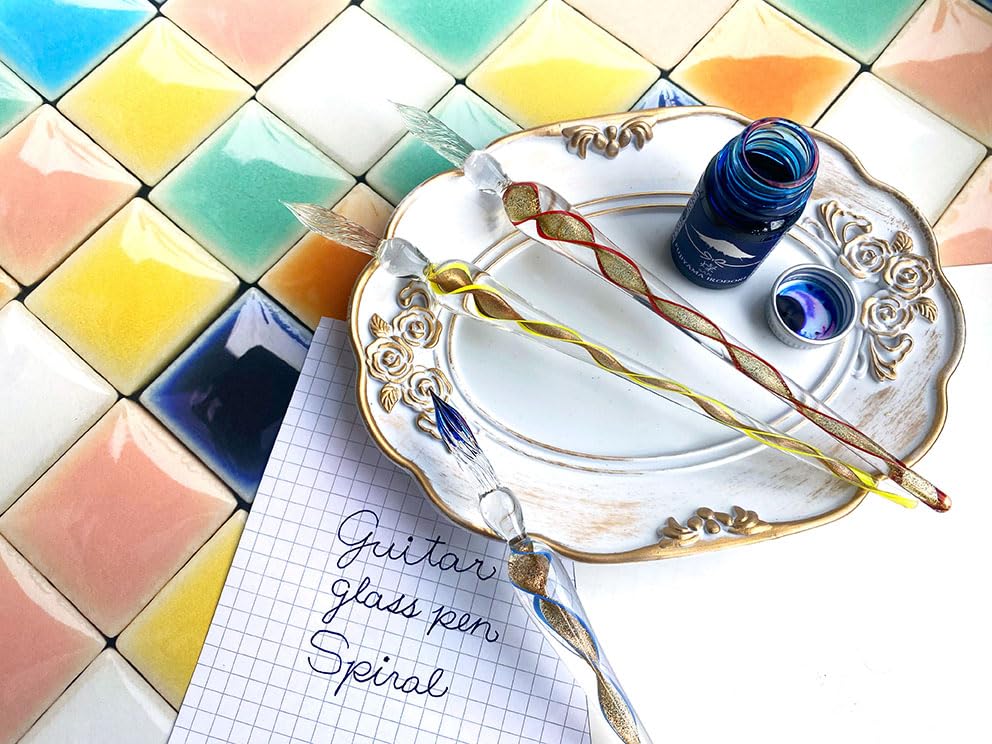 Guitar
glass pen
Spiral